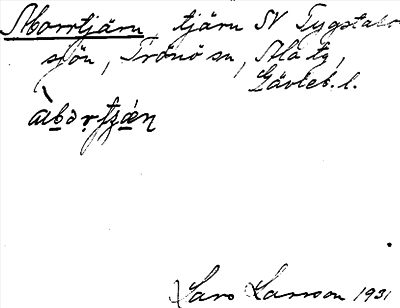 Åborrtjärn, tjärn SV Tygstabo
sjön, Trönö sn, Ala tg,
Gävleb. l.
àbər̥tjǽn
Lars Larsson 1931